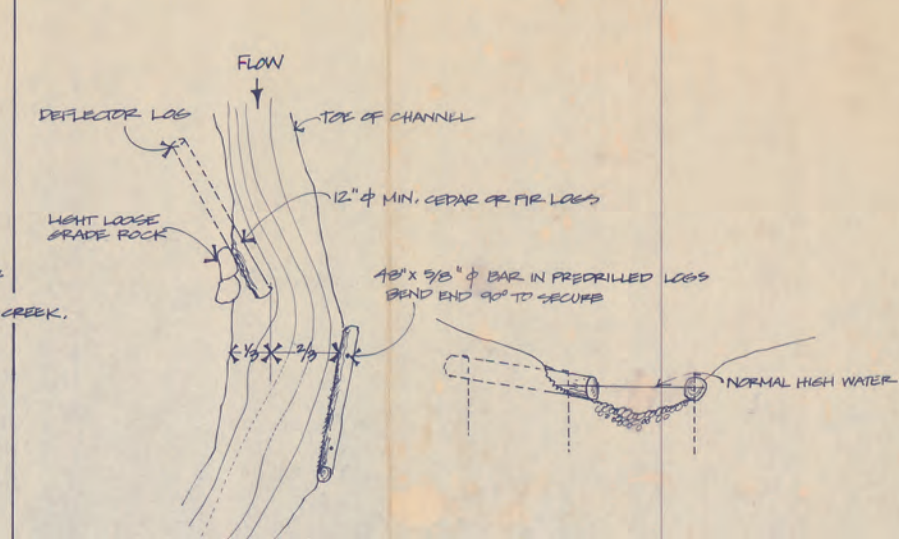 FLOW
DEFLECTOR LOG
TOE OF CHANNEL
12" ϕ MIN. CEDAR OR FIR LOGS
LIGHT LOOSE
GRADE ROCK
48" X 5/8" ϕ BAR IN PREDRILLED LOGS
BEND END 90° TO SECURE
CREEK.
1/3 2/3
NORMAL HIGH WATER